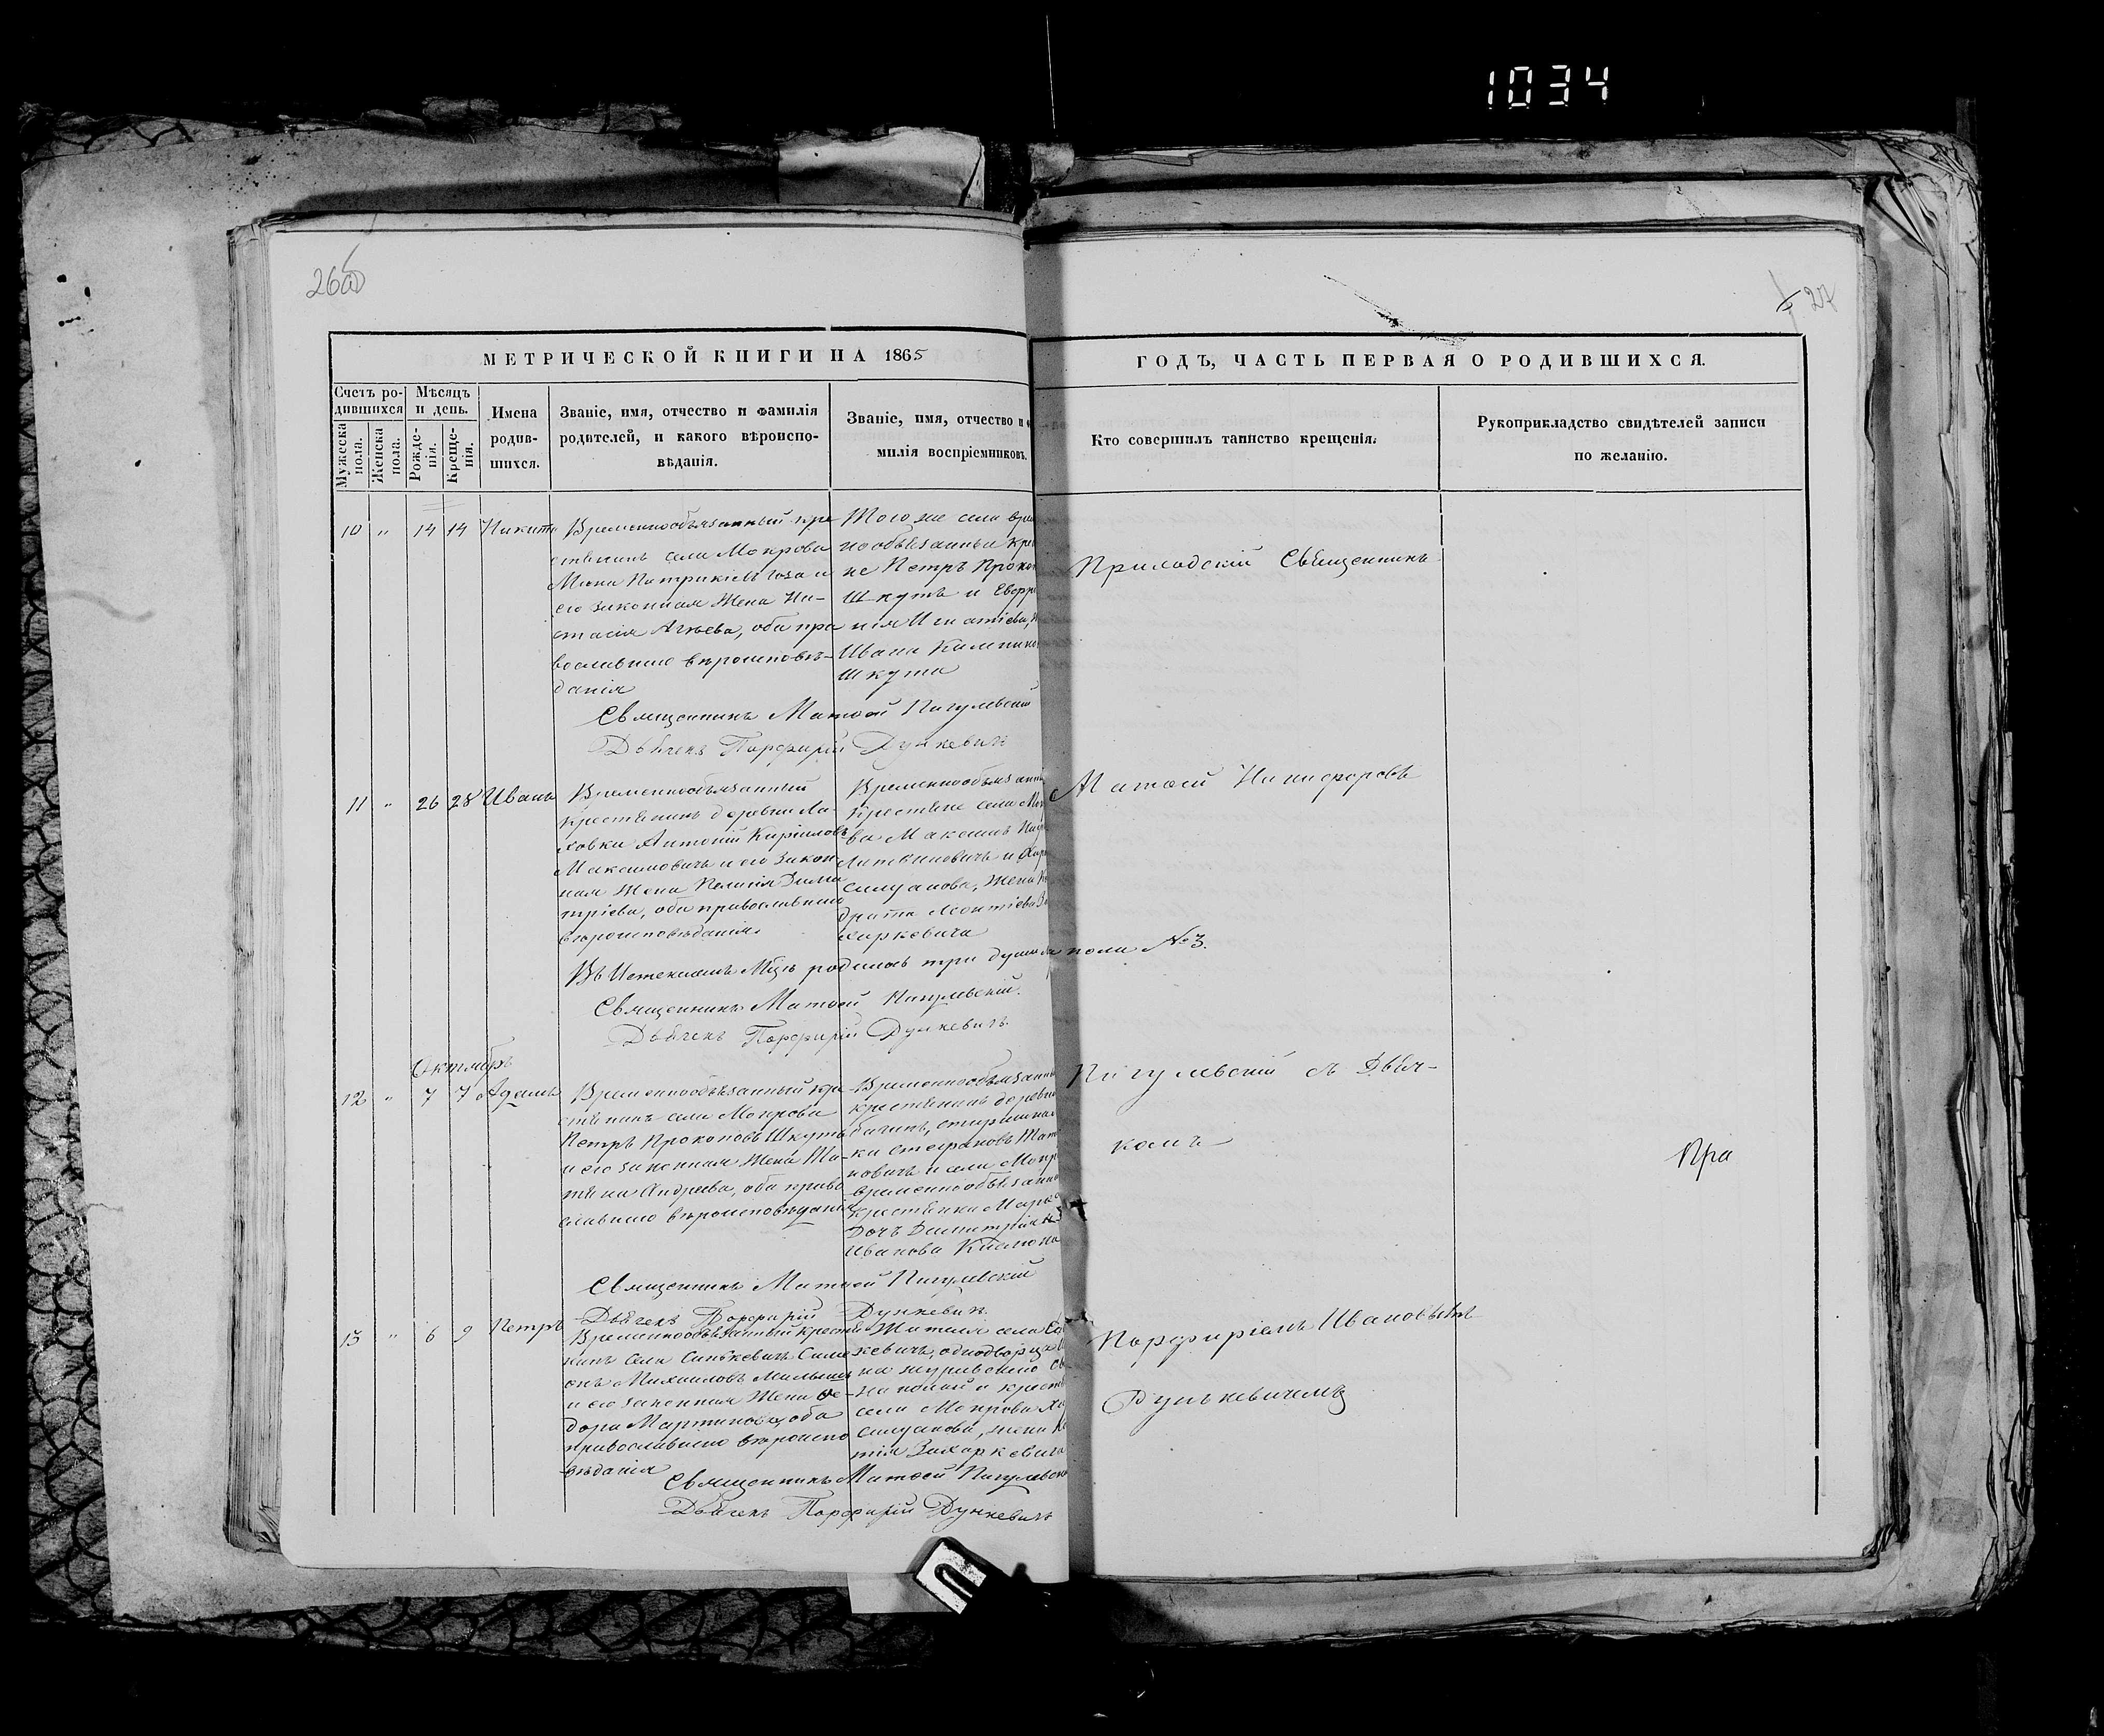 1034
26об
27
МЕТРИЧЕСКОЙ КНИГИ НА 1865
ГОДЪ, ЧАСТЬ ПЕРВАЯ О РОДИВШИХСЯ.
Счетъ родившихся
Мужеска пола.
Женска пола.
Мѣсяцъ и день.
Рожденія.
Крещенія.
Имена родившихся.
Званіе, имя, отчество и фамилія
родителей, и какого вѣроиспо-
вѣданія.
Званіе, имя, отчество и
милія воспріемниковъ.
Кто совершилъ таинство крещенія.
Рукоприкладство свидѣтелей записи
по желанію.
10 " 14 14 Никита
Временнообязанный кре
стянинъ села Мокрова
его законная жена На-
стасія Агѣева, оба пра
вославнаго вѣроисповѣ-
данія
Того же села вре
нообязанныи кре
не Петръ Проко
Шкутъ и Евфро
нія Игнатіева,
Ивана
Шкута
Священникъ Матѳей Пигулевскій
Дьячекъ Порфирій Дункевичъ
11 " 26 28 Иванъ
Временнообязанный
крестянинъ деревни Ля-
ховки Антоній Кириловъ
Максимовичъ и его закон
ная жена Пелагія Дими
тріева, оба православнаго
вѣроисповѣданія.
Временнообязанн
крестяне села Мок
ва Максимъ
Литвиновичъ и
Силуанова, жена
драта Леонтіева За
харкевича
Въ Истекшемъ Мцѣ родилось три души
пола №3.
Священникъ Матѳей Пигулевскій.
Дьячекъ Порфирій Дункевичъ.
Октябрь
12 " 7 7 Адамъ
Временнообязанный кре
стянинъ села Мокрова
Петръ Прокоповъ Шкутъ
и его законная жена Та-
тяна Андреева, оба право
славнаго вѣроисповѣданія
Временнообязанны
крестянинъ деревни
новичъ и села Мокр
временнообязанна
крестянка Марья
дочь Димитрія
Иванова
Священникъ Матѳей Пигулевскій
Дьячекъ Порфирій Дункевичъ
13 " 6 9 Петръ
Временнообязанный крестя
нинъ села Синкевичъ Симе
онъ Михаиловъ
и его законная жена Ѳе-
дора Мартинова, оба
православнаго вѣроиспо
вѣданія
Жители села Си
кевичъ, однодворца
села Мокрова
Силуанова, жена
тія Захаркевича
Священникъ Матѳей Пигулевскі
Дьячекъ Порфирій Дункевичъ
Приходскій Священникъ
Матѳей Никифоровъ
Пигулевскій съ Дьяч-
комъ
Порфиріемъ Ивановымъ
Дунькевичемъ
Пра